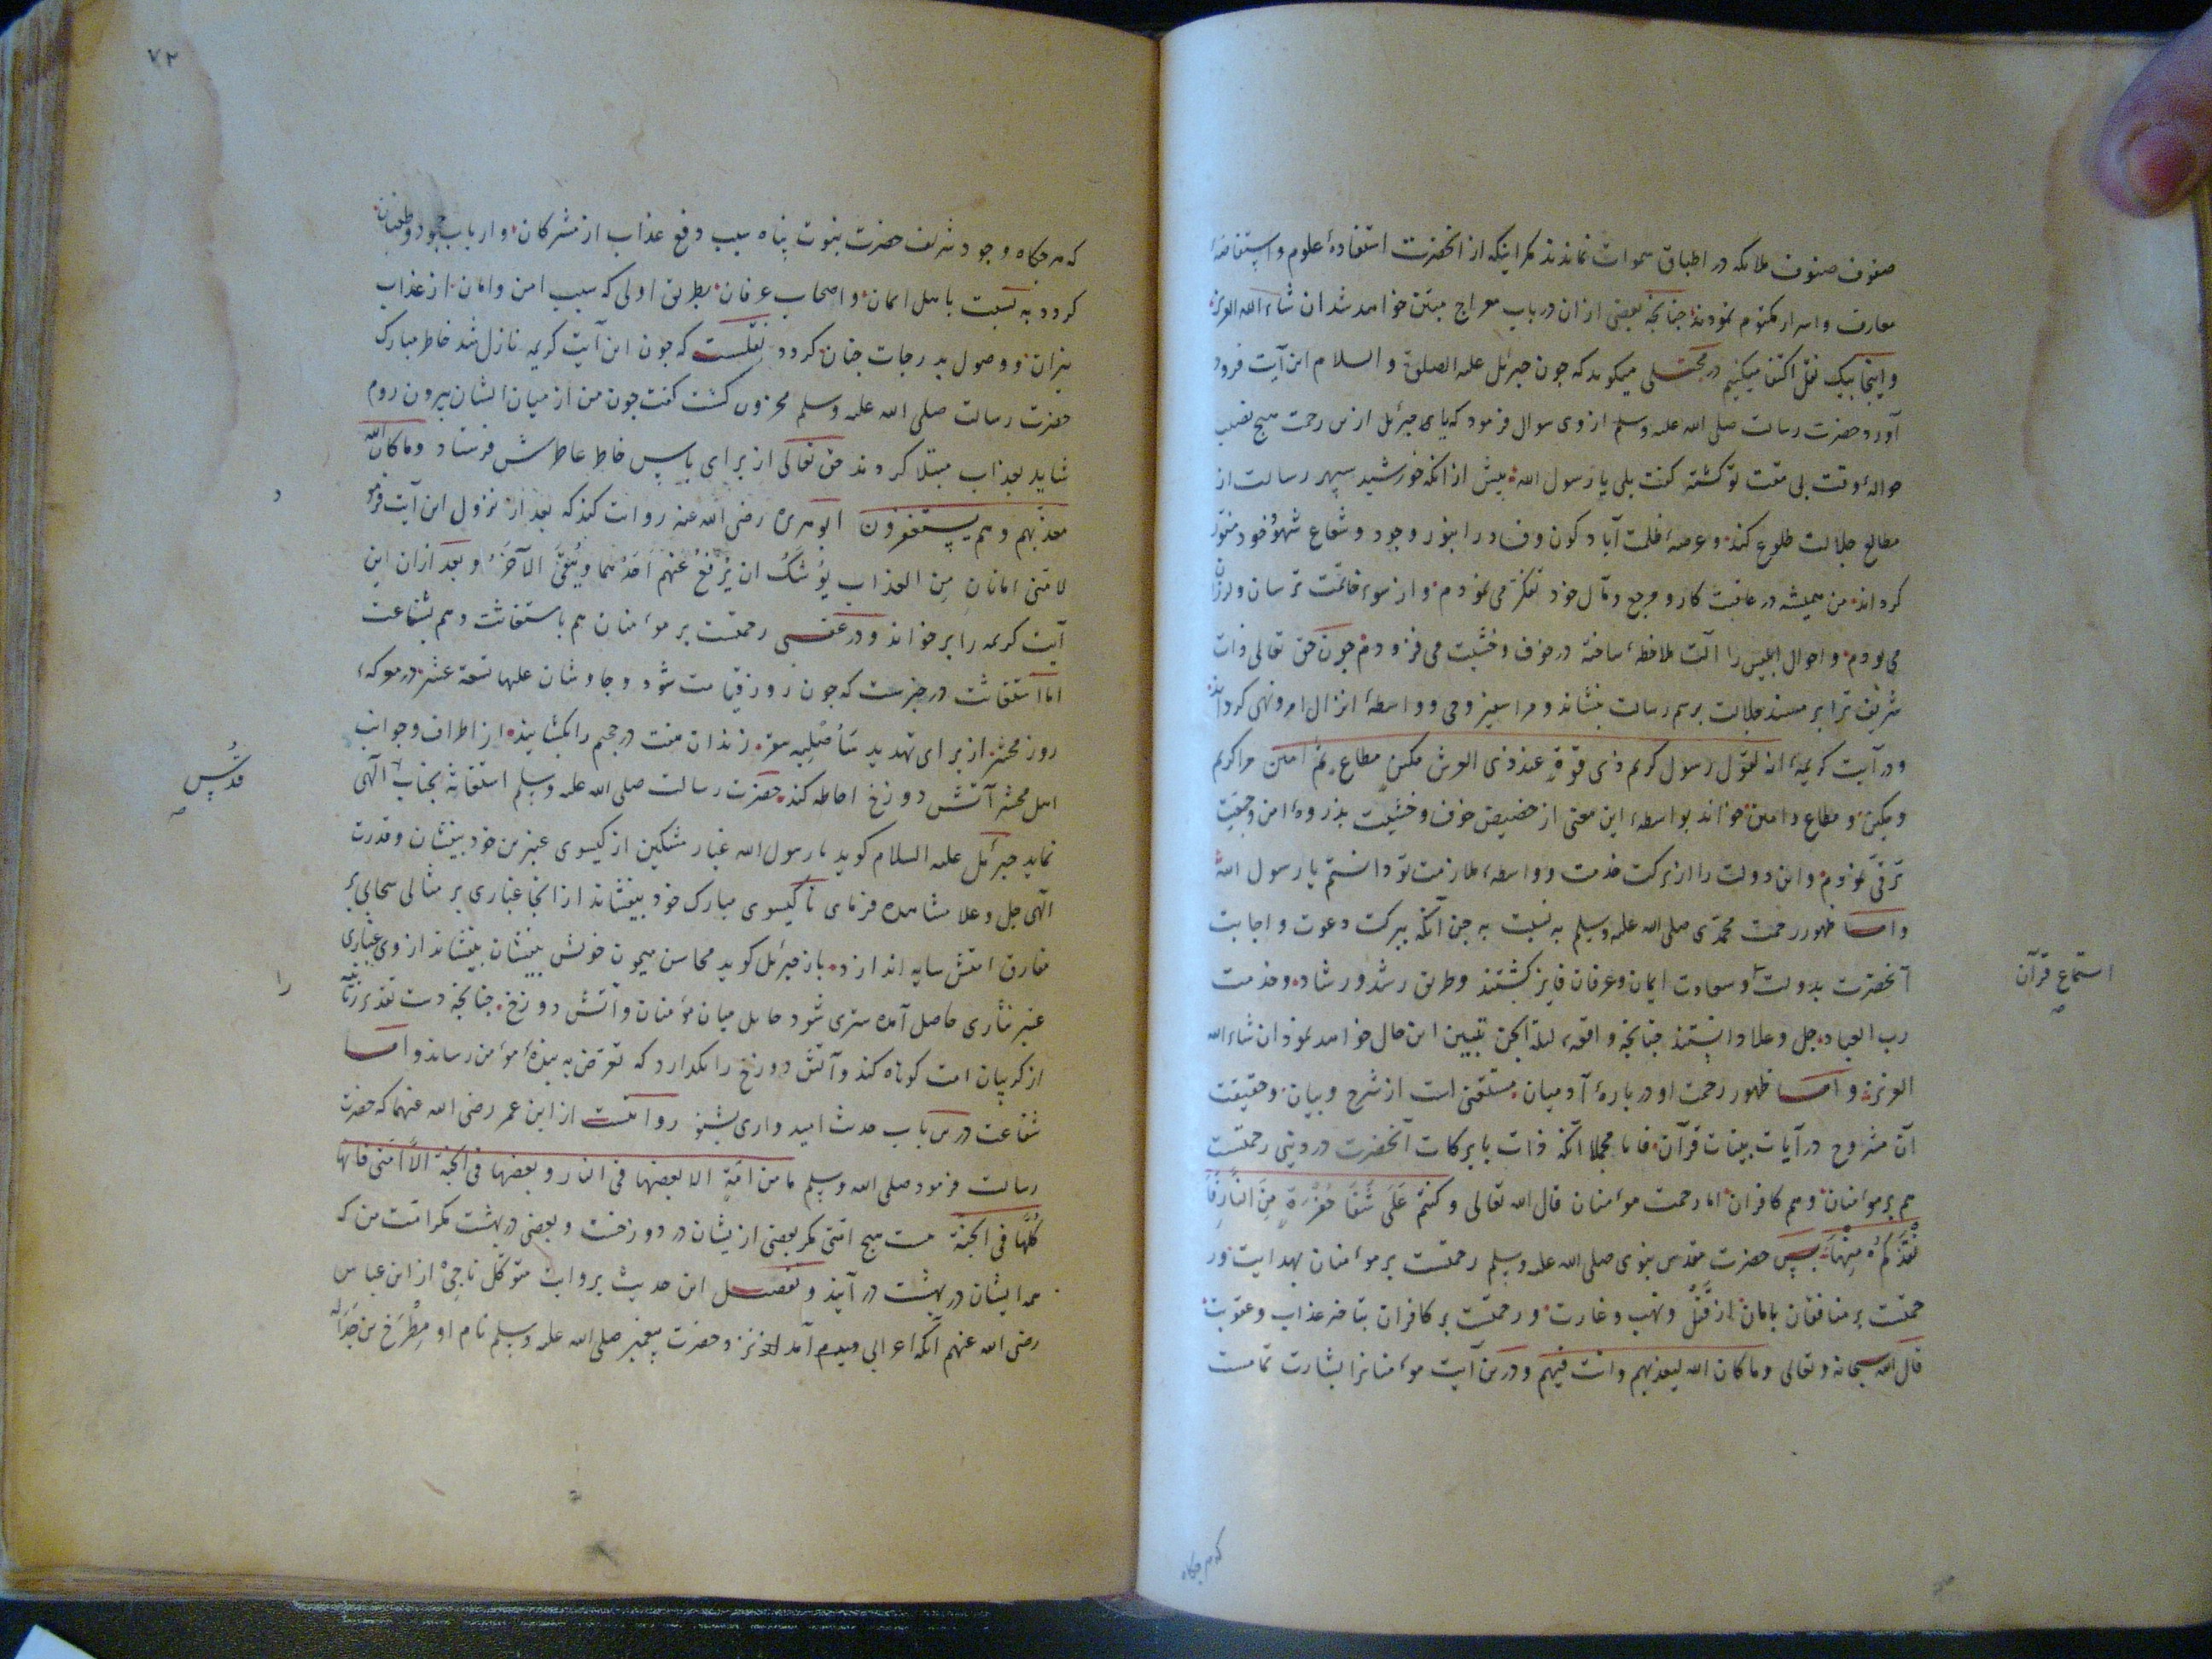 صفوف صفوف ملائکه در اطباق سموات نماندند مکر اینکه از انحضرت استفادهٔ علوم و استفاضهٔ
معارف و اسرار مکتوم نمودند چنانچه بعضی از ان در باب معراج مبیّن خواهد شد ان شاء الله العزیز
و اینجا بیک نقل اکتفا میکنیم در مجلسی میکوید که چون جبرئیل علیه الصلوة و السلام این آیت فرود
آورد حضرت رسالت صلی الله علیه وسلم از وی سوال فرمود که یا جبرئیل ازین رحمت هیچ نصیب
حوالهٔ وقت تو کشته کفت بلی یا رسول الله پیش از انکه خورشید سپهر رسالت از
مطالع جلالت طلوع کند و عرصهٔ ظلمت آباد کون و فساد را بنور وجود و شعاع شهود خود منوّر
کرداند من همیشه در عاقبت کار و مرجع و مآل خود تفکر می نمودم و از سوء خاتمت ترسان و لرزان
می بودم و احوال ابلیس را آلت ملاحظهٔ ساخته در خوف و خشیت می فزودم چون حق تعالی ذات
شریف ترا بر مسند جلالت برسم رسالت بنشاند و مرا سفیر وحی و واسطهٔ انزال امر و نهی کرداند
و در آیت کریمهٔ انه لقول رسول کریم ذی قوة عند ذی العرش مکین مطاع ثم امین مرا کریم
و مکین و مطاع و امین خواند بواسطهٔ این معنی از حضیض خوف و خشیت بذروهٔ امن و جمعیت
ترقی نمودم و این دولت را از برکت خدمت و واسطهٔ ملازمت تو دانستم یا رسول الله
و اما ظهور رحمت محمدی صلی الله علیه وسلم به نسبت به جن آنکه ببرکت دعوت و اجابت
آنحضرت بدولت و سعادت ایمان و عرفان فایز کشتند و طریق رشد و رشاد و خدمت
استماع قرآن
رب العباد جل و علا دانستند چنانچه واقعهٔ لیلة الجن تبیین این حال خواهد نمود ان شاء الله
العزیز و اما ظهور رحمت او در بارهٔ آدمیان مستغنی است از شرح و بیان و حقیقت
آن مشروح در آیات بینات قرآن فاما مجملا آنکه ذات بابرکات آنحضرت در دنیی رحمتست
هم بر مؤمنان و هم کافران اما رحمت مؤمنان قال الله تعالی و کنتم عَلَی شَفَا حُفْرَةٍ مِنَ النَّارِ فَاَ
نْقَذَکُمْ مِنْهَا پس حضرت مقدس نبوی صلی الله علیه وسلم رحمتست بر مؤمنان بهدایت و
رحمتست بر منافقان بامان از قتل و نهب و غارت و رحمتست بر کافران بتاخیر عذاب و عقوبت
قال الله سبحانه و تعالی و ما کان الله لیعذبهم و انت فیهم و درین آیت مؤمنانرا بشارت تمامست
که هرکاه
۷۲
که هرکاه وجود شریف حضرت نبوت پناه سبب دفع عذاب از مشرکان و ارباب جحود و طغیان
کردد به نسبت باهل ایمان و اصحاب عرفان بطریق اولی که سبب امن و امان از عذاب
نیران و وصول بدرجات جنان کردد نقلست که چون این آیت کریمه نازل شد خاطر مبارک
حضرت رسالت صلی الله علیه وسلم محزون کشت کفت چون من از میان ایشان بیرون روم
شاید بعذاب مبتلا کردند حق تعالی از برای پاس خاطر عاطرش فرستاد و ما کان الله
معذبهم و هم یستغفرون ابوهریره رضی الله عنه روایت کند که بعد از نزول این آیت فرمود
لامتی امانان مِن العذاب یُوشَکُ ان یُرْفَعُ عَنهم اَحَدُهما و یُبْقَیَ الآخَرُ و بعد ازان این
آیت کریمه را برخواند و در عقبی رحمتست بر مؤمنان هم باستغاثت و هم بشفاعت
اما استغاثت در خبرست که چون روز قیامت شود و چاوشان علیها تسعة عشر در معرکهٔ
روز محشر از برای تهدید سَأُصْلِیهِ سقر زندان هفت در جحیم را بکشایند از اطراف و جوانب
اهل محشر آتش دوزخ احاطه کند حضرت رسالت صلی الله علیه وسلم استغاثه بجناب الهی
قُدُس
نماید جبرئیل علیه السلام کوید یا رسول الله غبار مشکین از کیسوی عنبرین خود بیفشان و قدرت
الهی جل و علا مشاهده فرمای تا کیسوی مبارک خود بیفشاند از انجا غباری بر مثالی سحابی بر
مفارق امتش سایه اندازد باز جبرئیل کوید محاسن میمون خویش بیفشان بیفشاند از وی غباری
عنبر نثاری حاصل آمده ستری شود حایل میان مؤمنان و آتش دوزخ چنانچه دست تعذیر زبانیه
را
از کریبان امت کوتاه کند و آتش دوزخ را نکدارد که تعرض به بندهٔ مؤمن رساند و اما
شفاعت درین باب حدیث امیدواری بشنو روایتست از ابن عمر رضی الله عنهما که حضرت
رسالت فرمود صلی الله وسلم ما من امّةٍ الا بعضها فی النار و بعضها فی الجنة الّا امّتی فانها
کُلُّها فی الجنّة هست هیچ امتی مکر بعضی ازیشان در دوزخست و بعضی در بهشت مکر امّت من که
همه ایشان در بهشت در آیند و تفصیل این حدیث بروایت متوکّل ناجی از ابن عباس
رضی الله عنهم آنکه اعرابی آمد نزد حضرت پیغمبر صلی الله علیه وسلم نام او